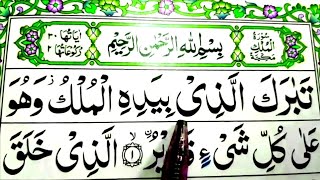 سُوْرَةُ الْمُلْكِ مَكِّيَّةٌ
بِسْمِ اللّٰهِ الرَّحْمٰنِ الرَّحِيْمِ
اٰيَاتُهَا ٣٠
رُكُوْعَاتُهَا ٢
تَبٰرَكَ الَّذِيْ بِيَدِهِ الْمُلْكُ وَهُوَ
عَلٰى كُلِّ شَيْءٍ قَدِيْرٌ ۙ ١ الَّذِيْ خَلَقَ